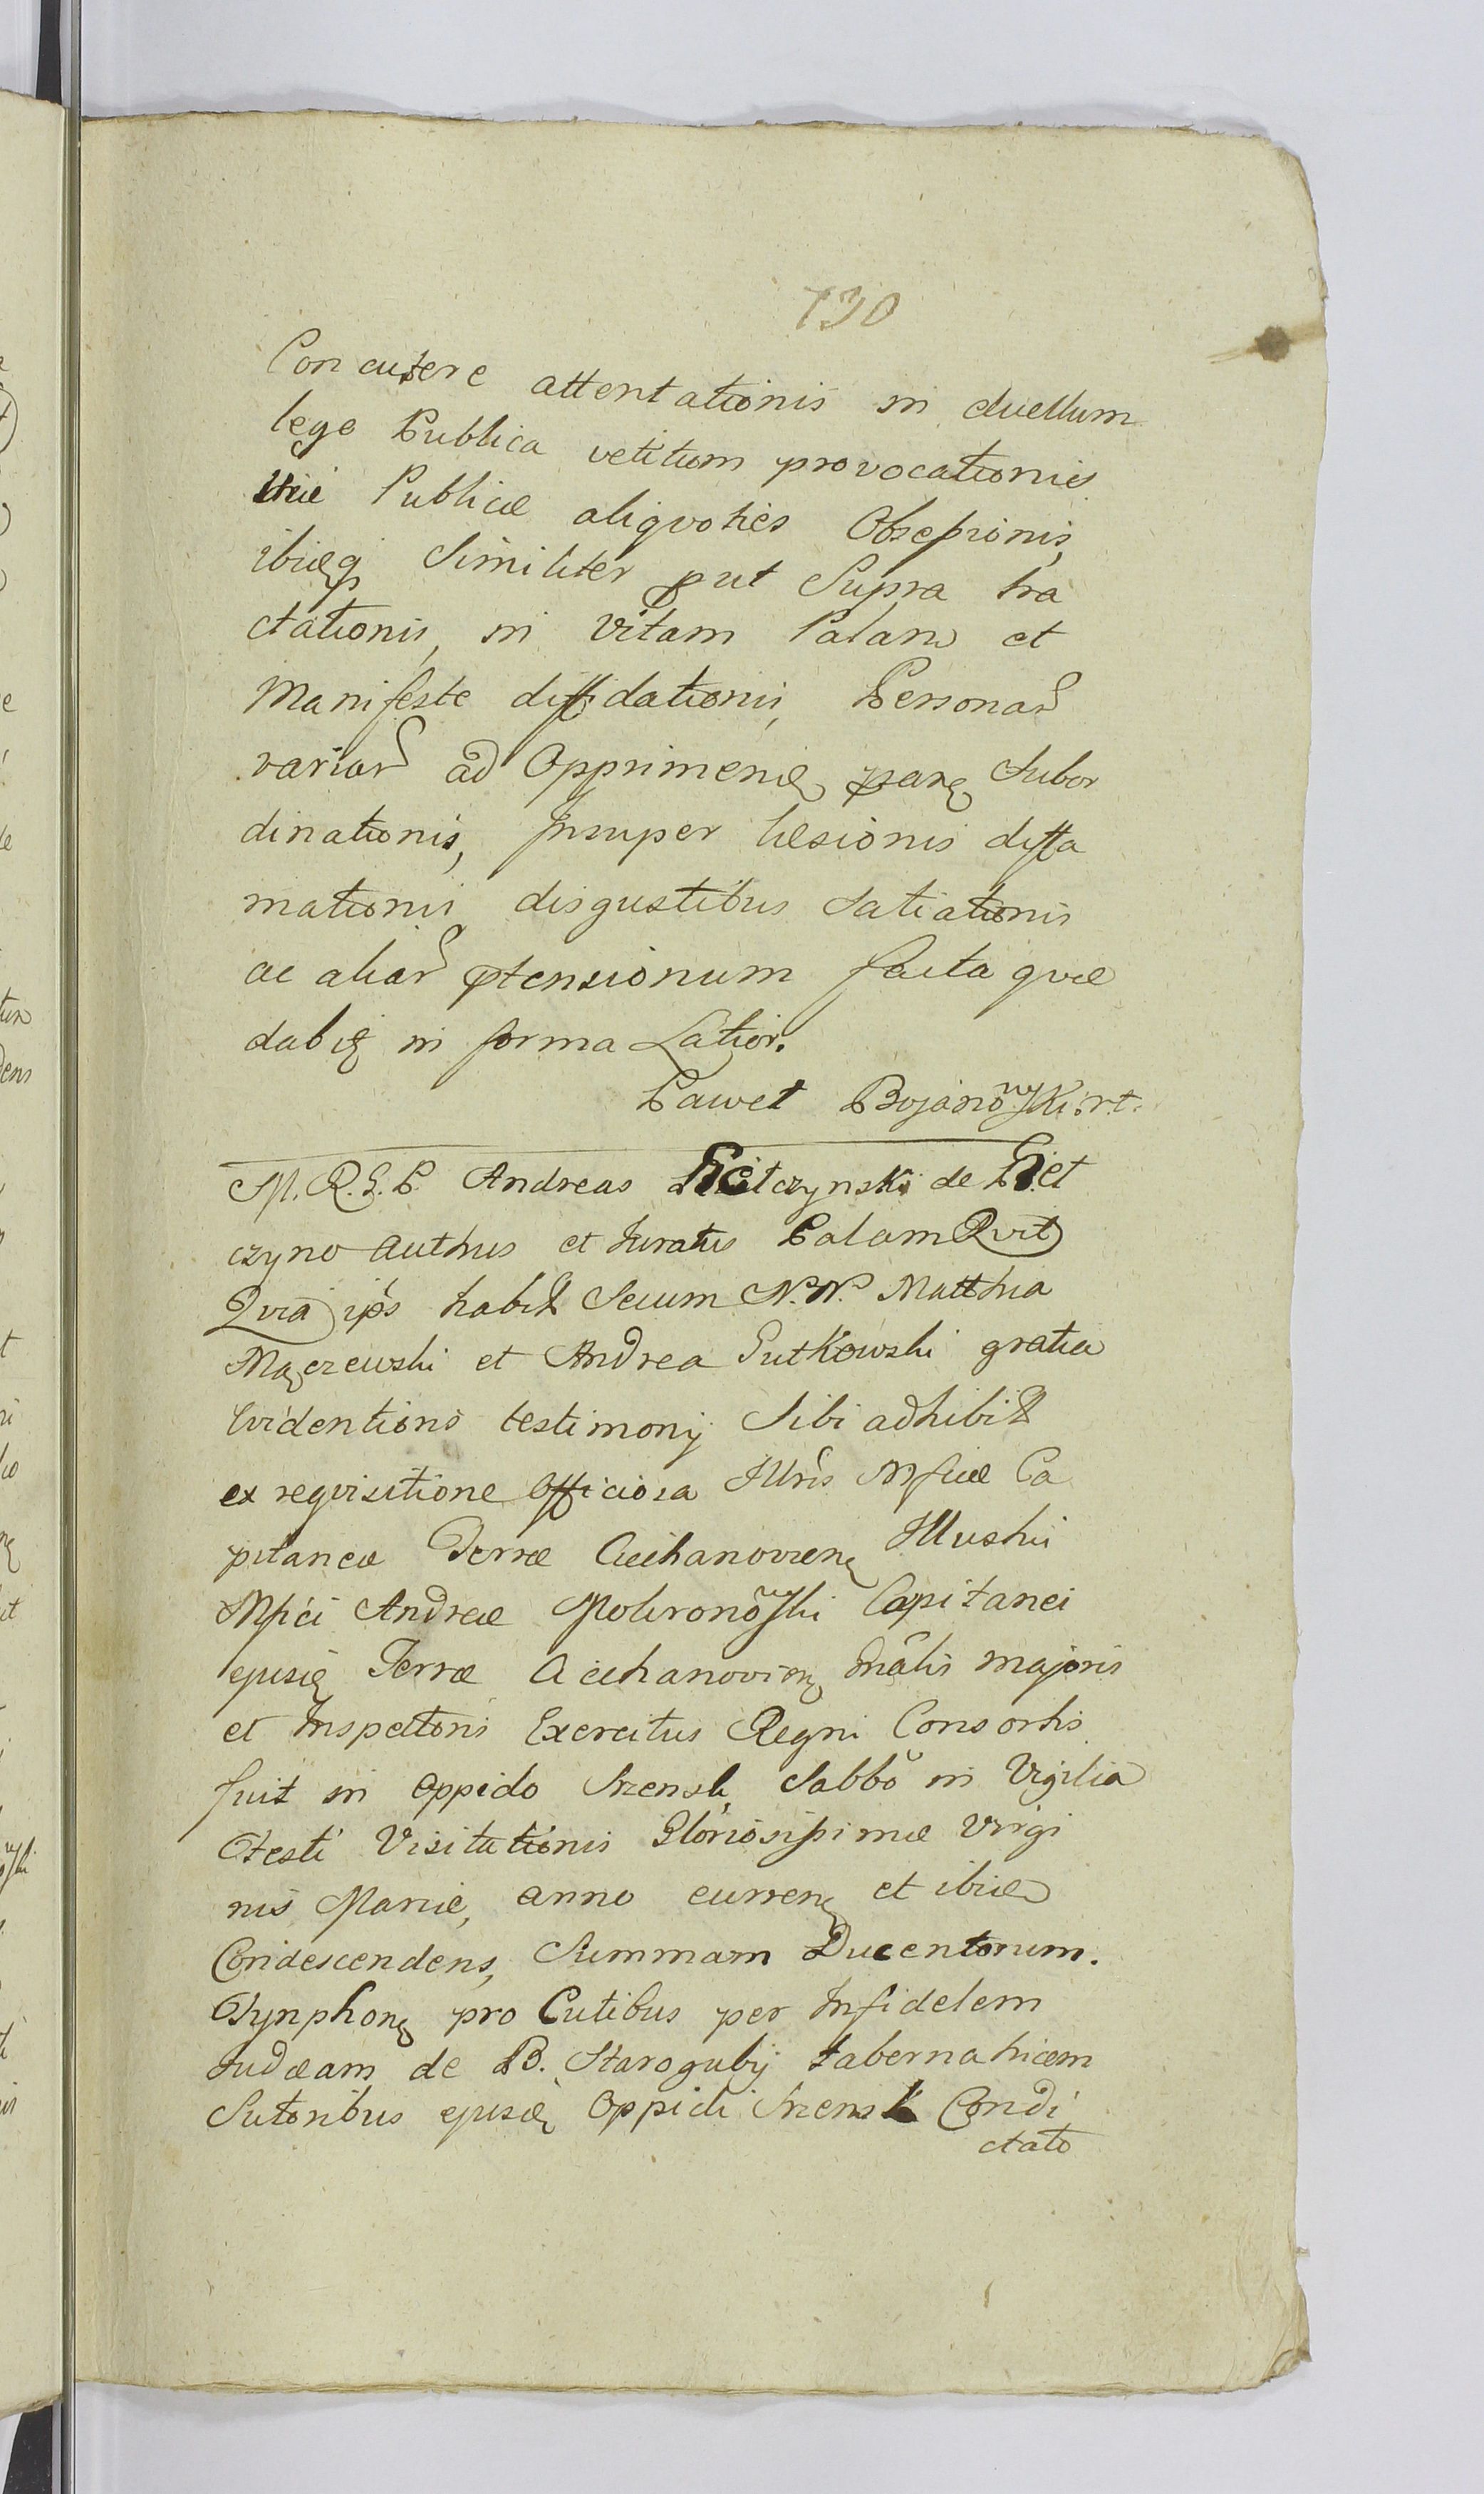 130
Concutere attentationis in duellum
lege Publica vetitum provocationis
Viæ Publicæ aliqvoties Obsessionis,
ibidēqꝫ Similiter put Supra tra
ctationis, in vitam Palam et
Manifeste diffidationis, Personar
variar ad Opprimend parte Subor
dinationis, Insuper læsionis diffa
mationis disgustibus Satiationis
ac aliar ptensionum facta qvæ
dabit in forma Latior.
Paweł Bojanowski rt.
M. R. G. P. Andreas Pietczynski de Piet
czyno Authus et Juratus Palam Qvit
Qvia ips habit Secum N. N. Matthia
Mączewski et Andrea Rutkowski gratia
Evidentioris testimonij Sibi adhibit
ex reqvisitione Officiosa Illris Mficæ Ca
pitaneæ Terræ Ciechanovien Illustris
Mfici Andreæ Mokronowski Capitanei
ejusd Terræ Ciechanovien Gnalis majoris
et Inspectoris Exercitus Regni Consortis
fuit in Oppido Srensk, Sabbo in Vigilia
Festi Visitationis Gloriosissimæ Virgi
nis Mariæ, anno curren et ibidem
Condescendens, Summam Ducentorum.
Tynphon pro Cutibus per Infidelem
Judæam de B. Starogubij tabernatricem
Sutoribus ejusd Oppidi Srensk Condi
ctato